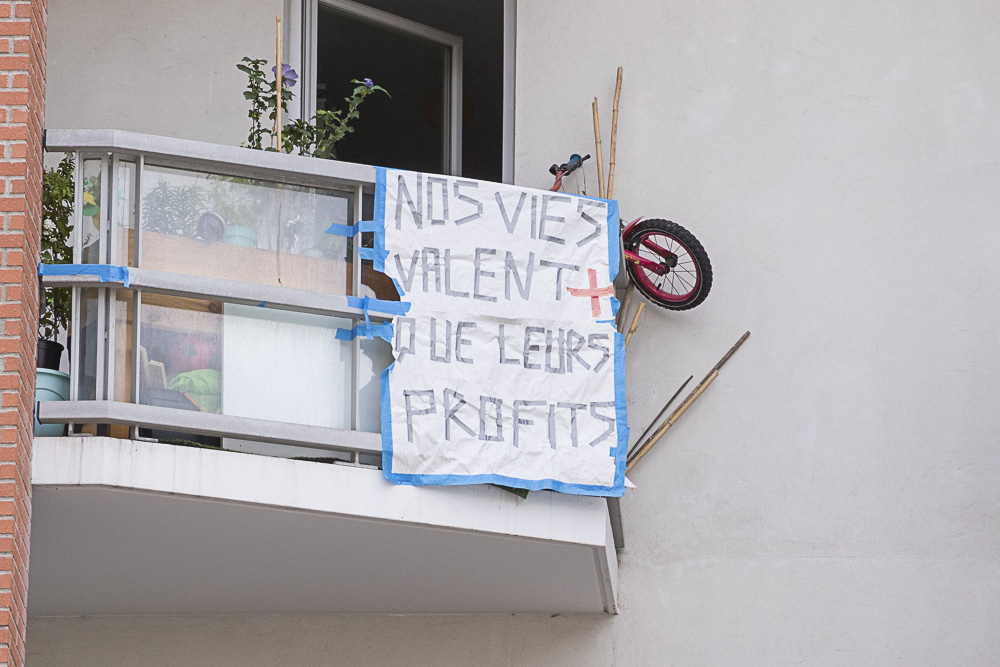 NOS VIES
VALENT +
QUE LEURS
PROFITS